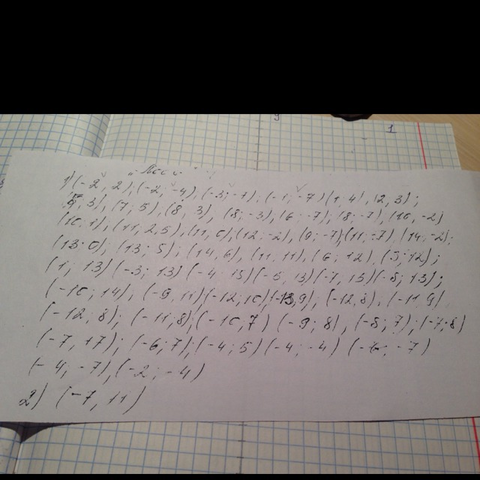 1) (-2; 2), (-2; -4), (-3; -7), (-1; -7) (1, 4), (2, 3);
5, 3), (7; 5), (8, 3), (8; -3), (6; -7), (8; -7), (10, -2)
(10, 1), (11, 2,5), (11, 0), (12; -2), (9; -7), (11; -7), (14, -2);
(13; 0), (13; 5); (14, 6), (11, 11), (6; 12), (3; 12);
(1, 13) (-3; 13) (-4, 15) (-5, 13) (-7, 15) (-8; 13);
(-10; 14); (-9, 11) (-12; 10) (-13, 9), (-12, 8), (-11, 9),
(-12, 8); (-11; 8); (-10, 7) (-9; 8), (-8; 7), (-7; 8)
(-7, 17); (-6; 7); (-4; 5) (-4; -4) (-6; -7)
(-4, -7), (-2; -4)
2) (-7, 11)